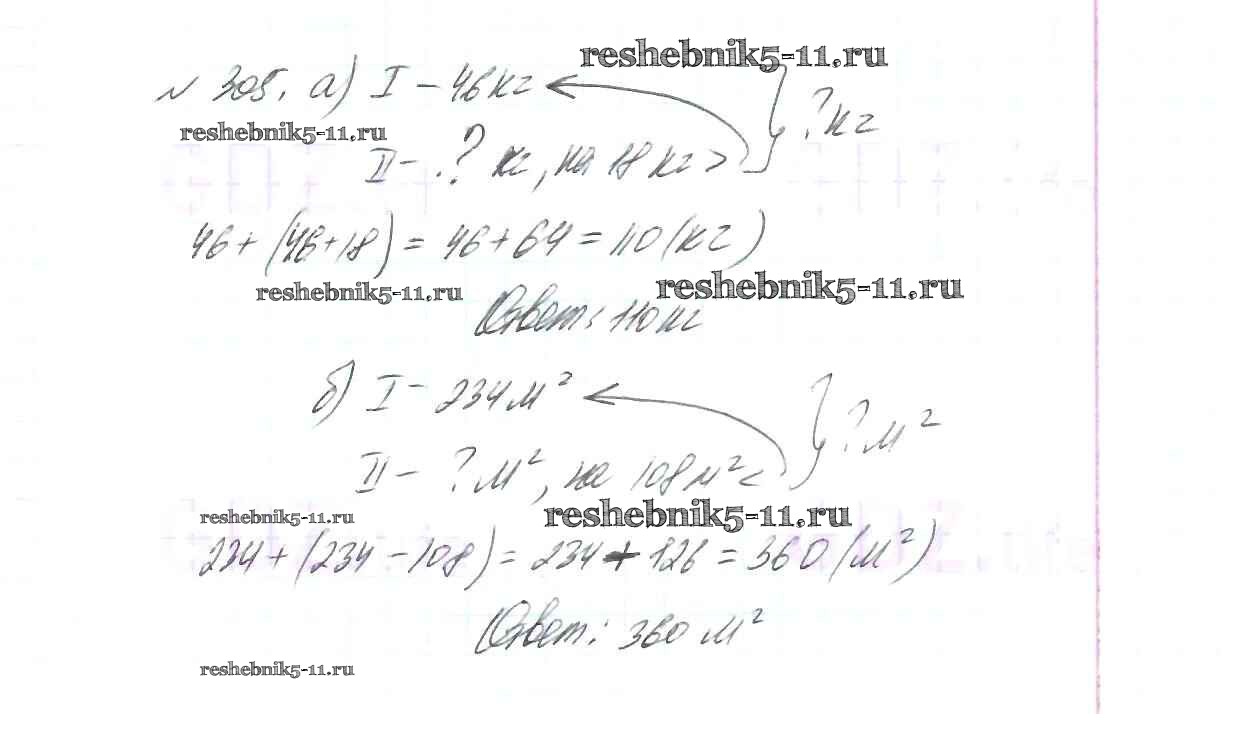 reshebnik5-11.ru
№ 305. а) I – 46 кг
? кг
reshebnik5-11.ru
II – ? кг, на 18 кг >
46 + (46+18) = 46 + 64 = 110 (кг)
reshebnik5-11.ru
reshebnik5-11.ru
Ответ: 110 кг
б) I – 234 м²
? м²
II – ? м², на 108 м² <
reshebnik5-11.ru
reshebnik5-11.ru
234 + (234 – 108) = 234 + 126 = 360 (м²)
Ответ: 360 м²
reshebnik5-11.ru